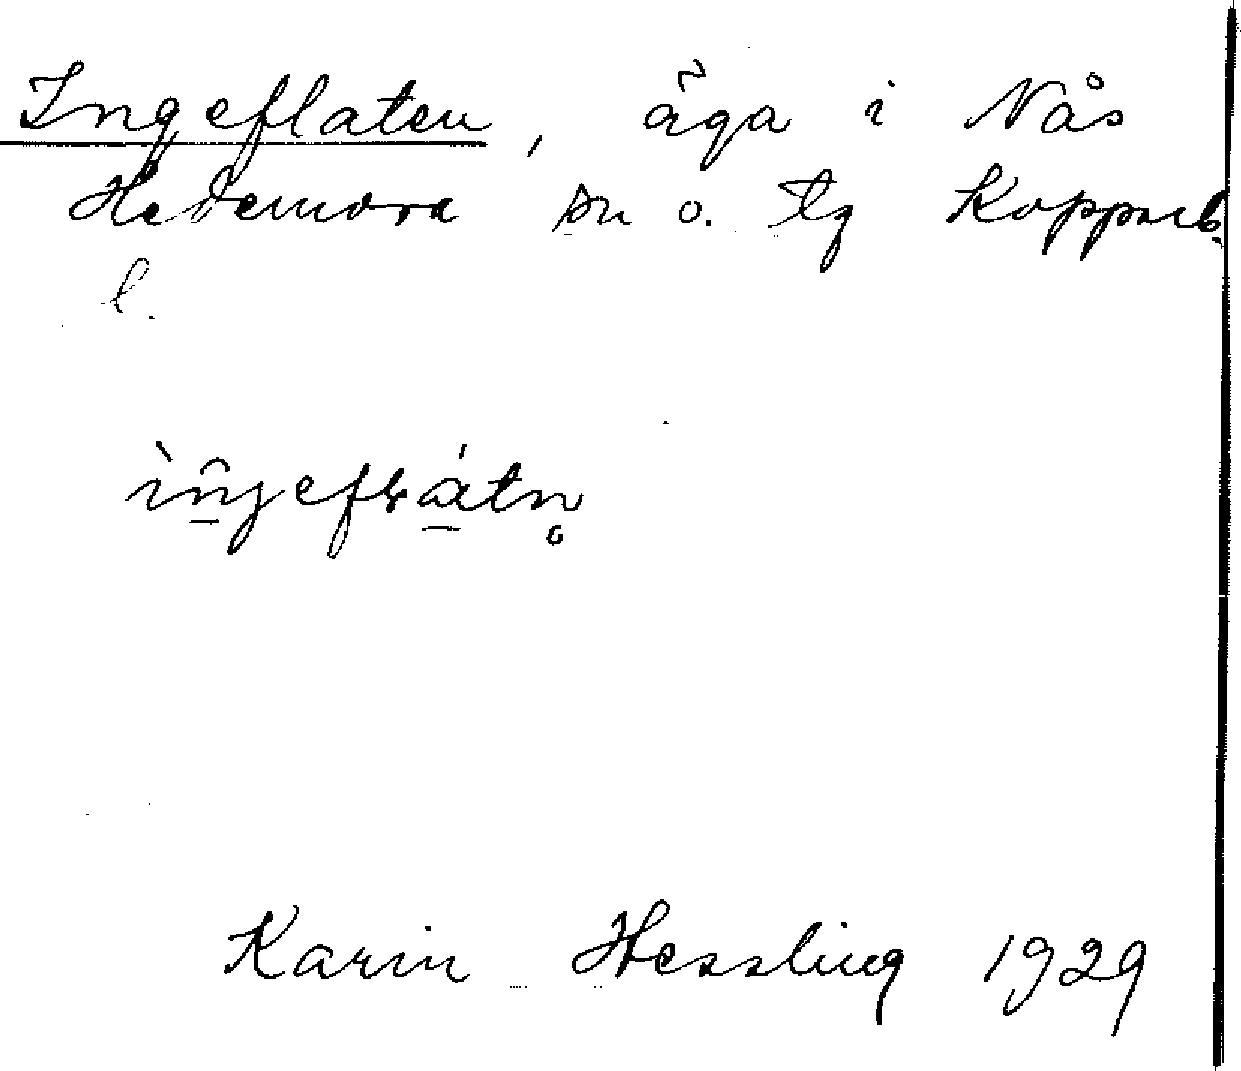 Ingeflaten, äga i Nås
Hedemora sn o. tg Kopparb.
l.
Karin Hessling 1929